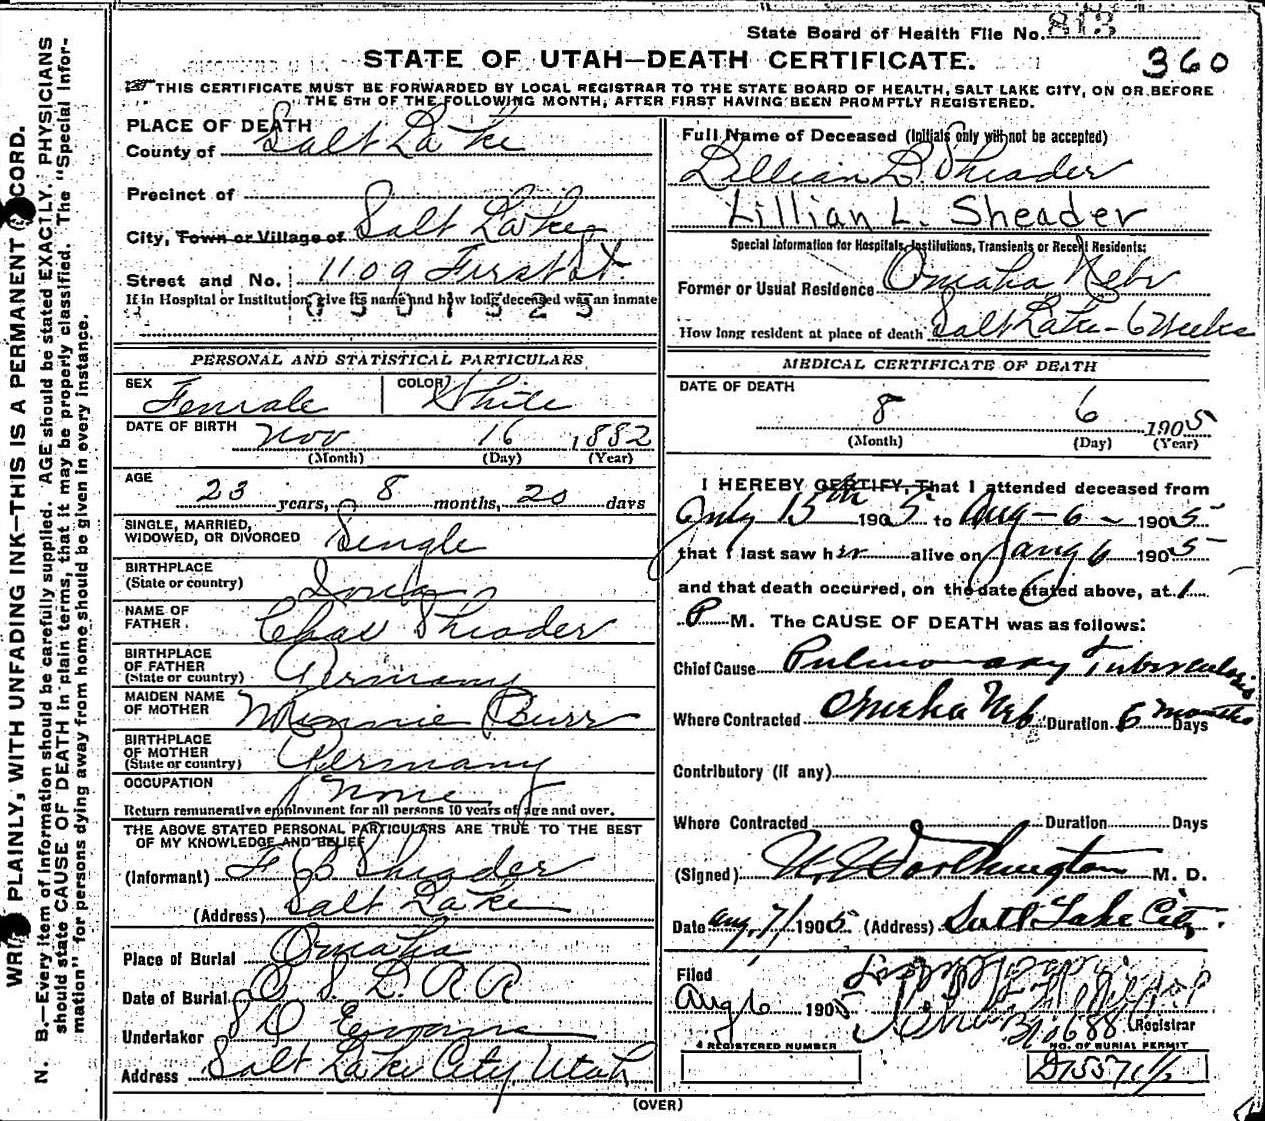 State Board of Health File No. 813
360
STATE OF UTAH—DEATH CERTIFICATE.
THIS CERTIFICATE MUST BE FORWARDED BY LOCAL REGISTRAR TO THE STATE BOARD OF HEALTH, SALT LAKE CITY, ON OR BEFORE
THE 5TH OF THE FOLLOWING MONTH, AFTER FIRST HAVING BEEN PROMPTLY REGISTERED.
PLAINLY, WITH UNFADING INK—THIS IS A PERMANENT
N. B.—Every item of information should be carefully supplied. AGE should be stated EXACTLY. PHYSICIANS
should state CAUSE OF DEATH in plain terms, that it may be properly classified. The "Special Infor-
mation" for persons dying away from home should be given in every instance.
PLACE OF DEATH
County of Salt Lake
Precinct of
City, Town or Village of Salt Lake
Street and No. 1109 First St.
If in Hospital or Institution, give its name and how long deceased was an inmate
0501325
PERSONAL AND STATISTICAL PARTICULARS
SEX Female COLOR White
DATE OF BIRTH Nov 16 1882
(Month) (Day) (Year)
AGE 23 years, 8 months, 20 days
SINGLE, MARRIED,
WIDOWED, OR DIVORCED Single
BIRTHPLACE
(State or country)
NAME OF
FATHER Chas Sheader
BIRTHPLACE
OF FATHER
(State or country) Germany
MAIDEN NAME
OF MOTHER Minnie Burr
BIRTHPLACE
OF MOTHER
(State or country) Germany
OCCUPATION None
Return remunerative employment for all persons 10 years of age and over.
THE ABOVE STATED PERSONAL PARTICULARS ARE TRUE TO THE BEST
OF MY KNOWLEDGE AND BELIEF
(Informant) F Sheader
(Address) Salt Lake
Place of Burial Omaha
Date of Burial O. S. L. R R
Undertaker S D Evans
Address Salt Lake City Utah
Full Name of Deceased (Initials only will not be accepted)
Lillian L. Sheader
Lillian L. Sheader
Special Information for Hospitals, Institutions, Transients or Recent Residents:
Former or Usual Residence Omaha Nebr
How long resident at place of death Salt Lake - 6 Weeks
MEDICAL CERTIFICATE OF DEATH
DATE OF DEATH
8 6 1905
(Month) (Day) (Year)
I HEREBY CERTIFY, That I attended deceased from
July 15th 1905 to Aug - 6 - 1905
that I last saw her alive on Aug 6 1905
and that death occurred, on the date stated above, at 1
P M. The CAUSE OF DEATH was as follows:
Chief Cause Pulmonary Tuberculosis
Where Contracted Omaha Neb Duration 6 months Days
Contributory (if any)
Where Contracted Duration Days
(Signed) Worthington M. D.
Date Aug 7/ 1905 (Address) Salt Lake City.
Filed
Aug 6 1905
Registrar
REGISTERED NUMBER
NO. OF BURIAL PERMIT
D1557 1/2
(OVER)